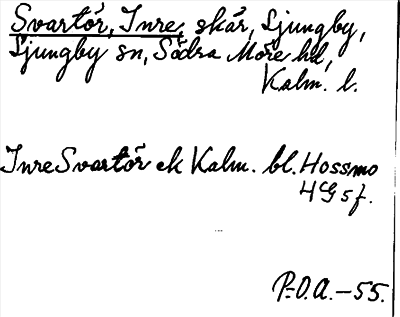 Svartör, Inre, skär, Ljungby,
Ljungby sn, Södra Möre hd,
Kalm. l.
Inre Svartör ek Kalm. bl. Hossmo
4G 5f.
P-O.A. -55.